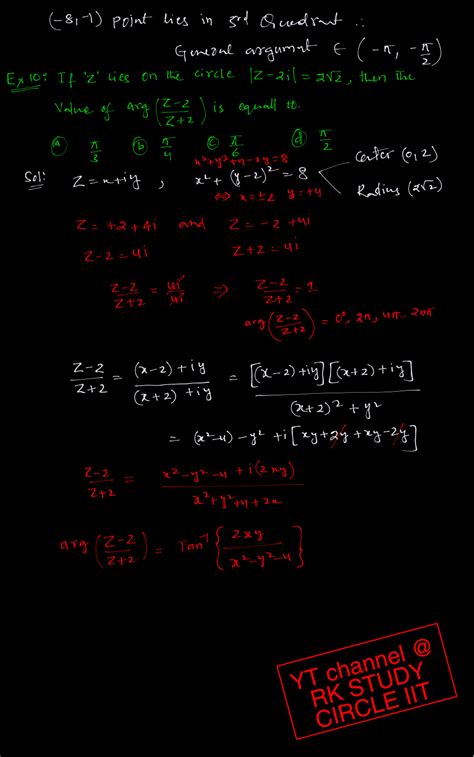 (-8,-1) point lies in 3rd Quadrant ∴
General argument ∈ (-π, -π/2)
Ex 10: If 'z' lies on the circle |z-2i| = 2√2, then the
value of arg(z-2/z+2) is equall to.
(a) π/3 (b) π/4 (c) π/6 (d) π/2
x²+y²+4-4y=8
Sol: z=x+iy , x²+(y-2)²=8 Center (0,2)
Radius (2√2)
⇔ x=±2 y=+4
z=+2+4i and z=-2+4i
z-2=4i z+2=4i
z-2/z+2 = 4i/4i ⇒ z-2/z+2 = 1
arg(z-2/z+2) = 0°, 2π, 4π.. 2nπ
z-2/z+2 = (x-2)+iy/(x+2)+iy = [(x-2)+iy][(x+2)+iy]/(x+2)²+y²
= (x²-4)-y²+i[xy+2y+xy-2y]
z-2/z+2 = x²-y²-4+i(2xy)/x²+y²+4+2x
arg(z-2/z+2) = Tan⁻¹{2xy/x²-y²-4}
YT channel @
RK STUDY
CIRCLE IIT